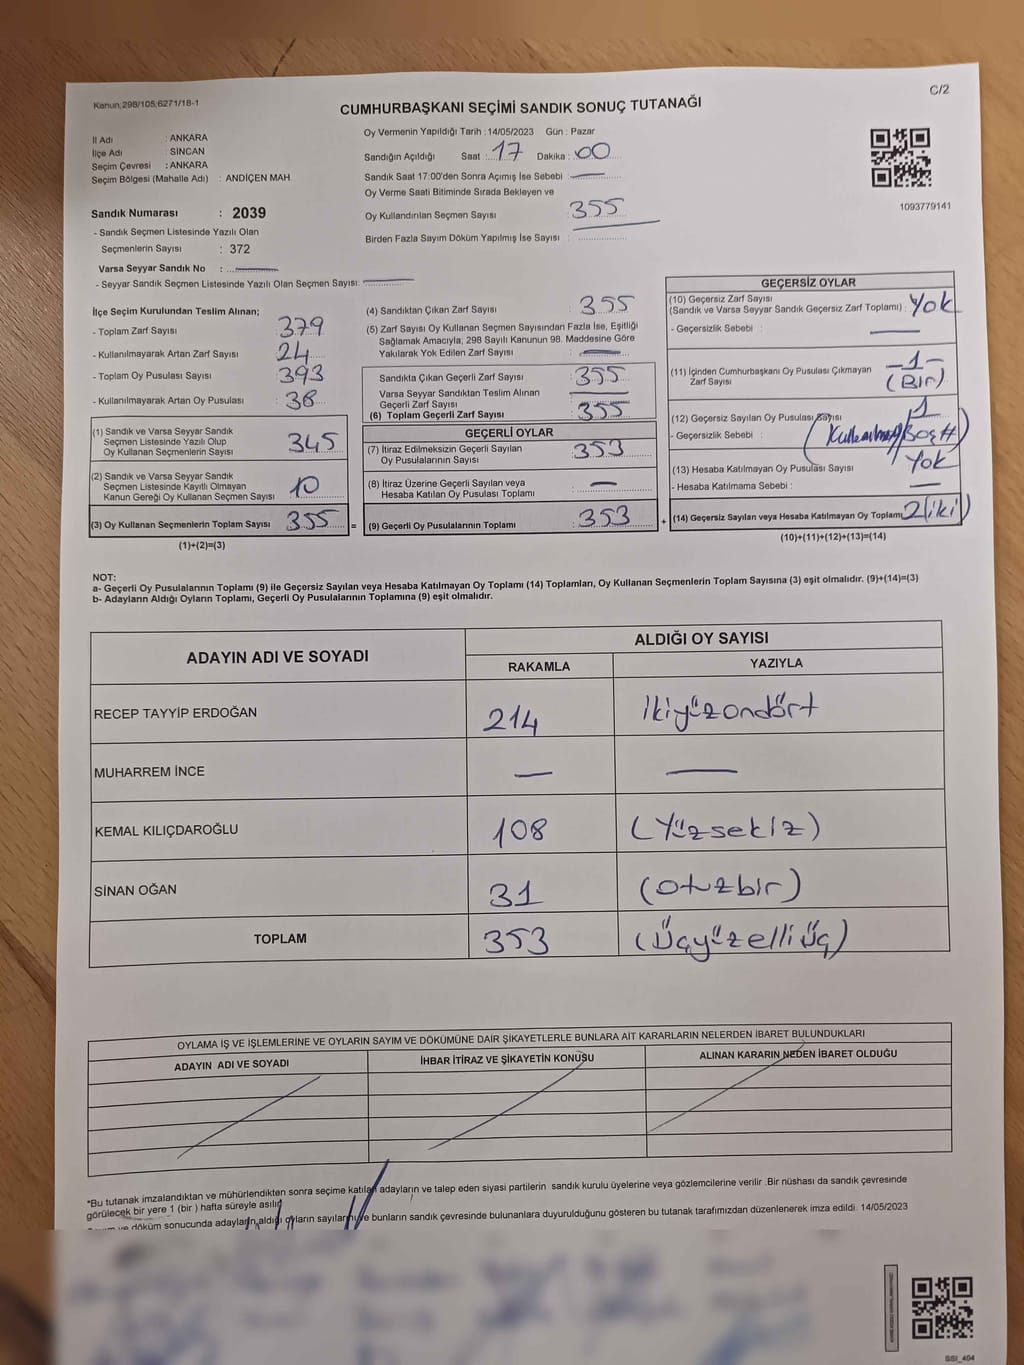 Kanun;298/105;6271/18-1
C/2
CUMHURBAŞKANI SEÇİMİ SANDIK SONUÇ TUTANAĞI
İl Adı : ANKARA
İlçe Adı : SİNCAN
Seçim Çevresi : ANKARA
Seçim Bölgesi (Mahalle Adı) : ANDİÇEN MAH.
Oy Vermenin Yapıldığı Tarih : 14/05/2023 Gün : Pazar
Sandığın Açıldığı Saat : 17 Dakika : 00
Sandık Saat 17:00'den Sonra Açımış İse Sebebi :
Oy Verme Saati Bitiminde Sırada Bekleyen ve
Oy Kullandırılan Seçmen Sayısı : 355
Birden Fazla Sayım Döküm Yapılmış İse Sayısı :
1093779141
Sandık Numarası : 2039
- Sandık Seçmen Listesinde Yazılı Olan
Seçmenlerin Sayısı : 372
Varsa Seyyar Sandık No :
- Seyyar Sandık Seçmen Listesinde Yazılı Olan Seçmen Sayısı:
İlçe Seçim Kurulundan Teslim Alınan;
- Toplam Zarf Sayısı : 379
- Kullanılmayarak Artan Zarf Sayısı : 24
- Toplam Oy Pusulası Sayısı : 393
- Kullanılmayarak Artan Oy Pusulası : 38
(1) Sandık ve Varsa Seyyar Sandık
Seçmen Listesinde Yazılı Olup
Oy Kullanan Seçmenlerin Sayısı : 345
(2) Sandık ve Varsa Seyyar Sandık
Seçmen Listesinde Kayıtlı Olmayan
Kanun Gereği Oy Kullanan Seçmen Sayısı : 10
(3) Oy Kullanan Seçmenlerin Toplam Sayısı : 355
(1)+(2)=(3)
=
(4) Sandıktan Çıkan Zarf Sayısı : 355
(5) Zarf Sayısı Oy Kullanan Seçmen Sayısından Fazla İse, Eşitliği
Sağlamak Amacıyla, 298 Sayılı Kanunun 98. Maddesine Göre
Yakılarak Yok Edilen Zarf Sayısı :
Sandıkta Çıkan Geçerli Zarf Sayısı : 355
Varsa Seyyar Sandıktan Teslim Alınan
Geçerli Zarf Sayısı :
(6) Toplam Geçerli Zarf Sayısı : 355
GEÇERLİ OYLAR
(7) İtiraz Edilmeksizin Geçerli Sayılan
Oy Pusulalarının Sayısı : 353
(8) İtiraz Üzerine Geçerli Sayılan veya
Hesaba Katılan Oy Pusulası Toplamı :
(9) Geçerli Oy Pusulalarının Toplamı : 353
+
GEÇERSİZ OYLAR
(10) Geçersiz Zarf Sayısı
(Sandık ve Varsa Seyyar Sandık Geçersiz Zarf Toplamı) : Yok
- Geçersizlik Sebebi :
(11) İçinden Cumhurbaşkanı Oy Pusulası Çıkmayan
Zarf Sayısı
-1-
(Bir)
(12) Geçersiz Sayılan Oy Pusulası Sayısı 1
- Geçersizlik Sebebi :
(13) Hesaba Katılmayan Oy Pusulası Sayısı : Yok
- Hesaba Katılmama Sebebi :
(14) Geçersiz Sayılan veya Hesaba Katılmayan Oy Toplamı 2(iki)
(10)+(11)+(12)+(13)=(14)
NOT:
a- Geçerli Oy Pusulalarının Toplamı (9) ile Geçersiz Sayılan veya Hesaba Katılmayan Oy Toplamı (14) Toplamları, Oy Kullanan Seçmenlerin Toplam Sayısına (3) eşit olmalıdır. (9)+(14)=(3)
b- Adayların Aldığı Oyların Toplamı, Geçerli Oy Pusulalarının Toplamına (9) eşit olmalıdır.
ADAYIN ADI VE SOYADI
ALDIĞI OY SAYISI
RAKAMLA YAZIYLA
RECEP TAYYİP ERDOĞAN 214 ikiyüzondört
MUHARREM İNCE
KEMAL KILIÇDAROĞLU 108 (Yüzsekiz)
SİNAN OĞAN 31 (otuzbir)
TOPLAM 353 (Üçyüzelliüç)
OYLAMA İŞ VE İŞLEMLERİNE VE OYLARIN SAYIM VE DÖKÜMÜNE DAİR ŞİKAYETLERLE BUNLARA AİT KARARLARIN NELERDEN İBARET BULUNDUKLARI
ADAYIN ADI VE SOYADI İHBAR İTİRAZ VE ŞİKAYETİN KONUSU ALINAN KARARIN NEDEN İBARET OLDUĞU
*Bu tutanak imzalandıktan ve mühürlendikten sonra seçime katılan adayların ve talep eden siyasi partilerin sandık kurulu üyelerine veya gözlemcilerine verilir .Bir nüshası da sandık çevresinde
görülecek bir yere 1 (bir ) hafta süreyle asılır.
ve döküm sonucunda adayların aldığı oyların sayılarını ve bunların sandık çevresinde bulunanlara duyurulduğunu gösteren bu tutanak tarafımızdan düzenlenerek imza edildi. 14/05/2023
SSI_404